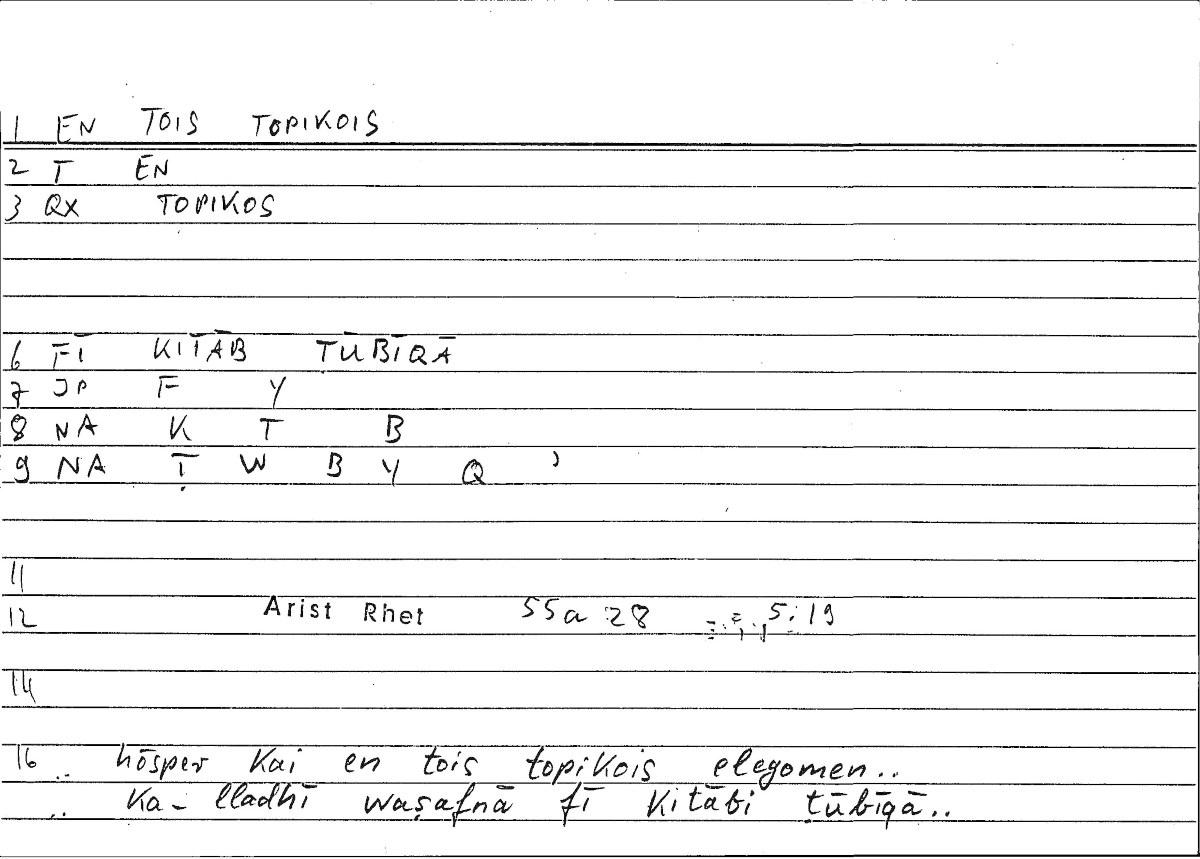 1 EN TOIS TOPIKOIS
2 T EN
3 QX TOPIKOS
6 FĪ KITĀB ṬŪBĪQĀ
7 JP F Y
8 NA K T B
9 NA Ṭ W B Y Q ʾ
11
12 Arist Rhet 55a 28 5:19
14
16 .. hōsper kai en tois topikois elegomen..
.. ka-lladhī waṣafnā fī kitābi ṭūbīqā..